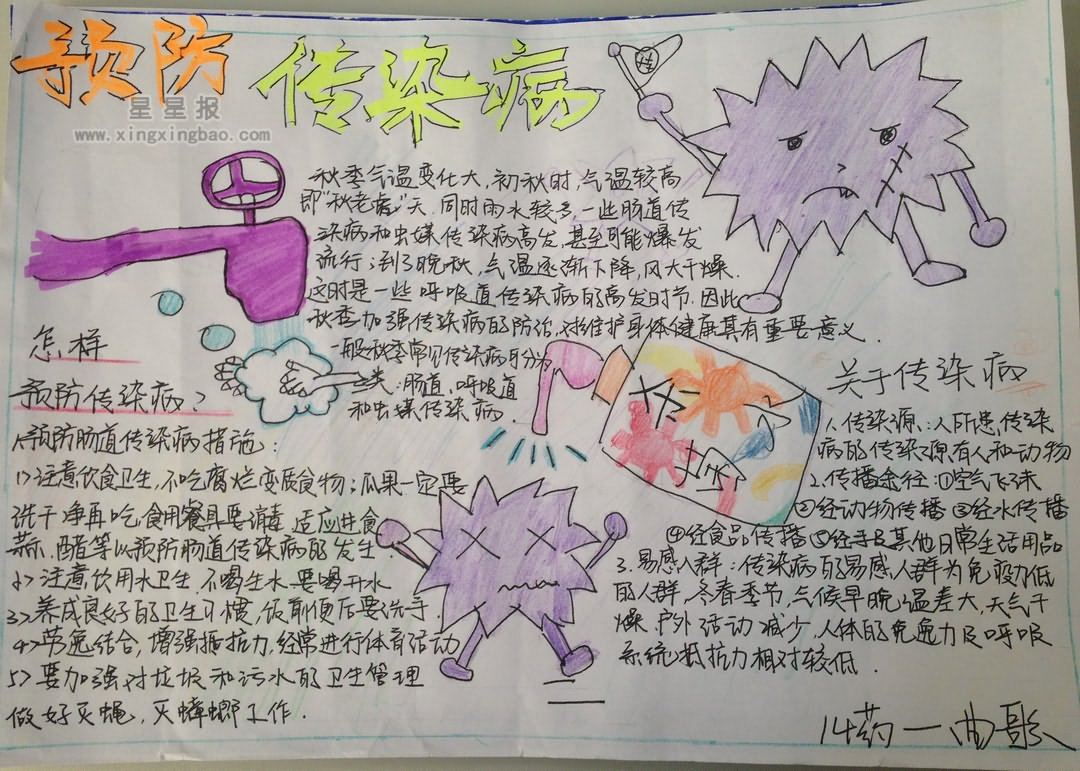 预防
传染病
星星报
www.xingxingbao.com
秋季气温变化大,初秋时,气温较高
即"秋老虎"天.同时雨水较多,一些肠道传
染病和虫媒传染病高发,甚至可能爆发
流行;到了晚秋,气温逐渐下降,风大干燥.
这时是一些呼吸道传染病的高发时节.因此
秋季加强传染病的防治,对维护身体健康具有重要意义.
一般秋季常见传染病可分为
类:肠道,呼吸道
和虫媒传染病.
怎样
预防传染病?
1、预防肠道传染病措施:
1>注意饮食卫生,不吃腐烂变质食物;瓜果一定要
洗干净再吃.食用餐具要消毒 适应进食
蒜、醋等以预防肠道传染病的发生
2>注意饮用水卫生,不喝生水.要喝开水
3>养成良好的卫生习惯,饭前便后要洗手
4>劳逸结合,增强抵抗力,经常进行体育活动
5>要加强对垃圾和污水的卫生管理
做好灭蝇,灭蟑螂工作.
关于传染病
1、传染源:人所患传染
病的传染源有人和动物
2.传播途径:①空气飞沫
②经动物传播③经水传播
④经食品传播⑤经手及其他日常生活用品
3.易感人群:传染病的易感人群为免疫力低
的人群,冬春季节,气候早晚温差大,天气干
燥.户外活动减少,人体的免疫力及呼吸
系统抵抗力相对较低.
14药一曲歌